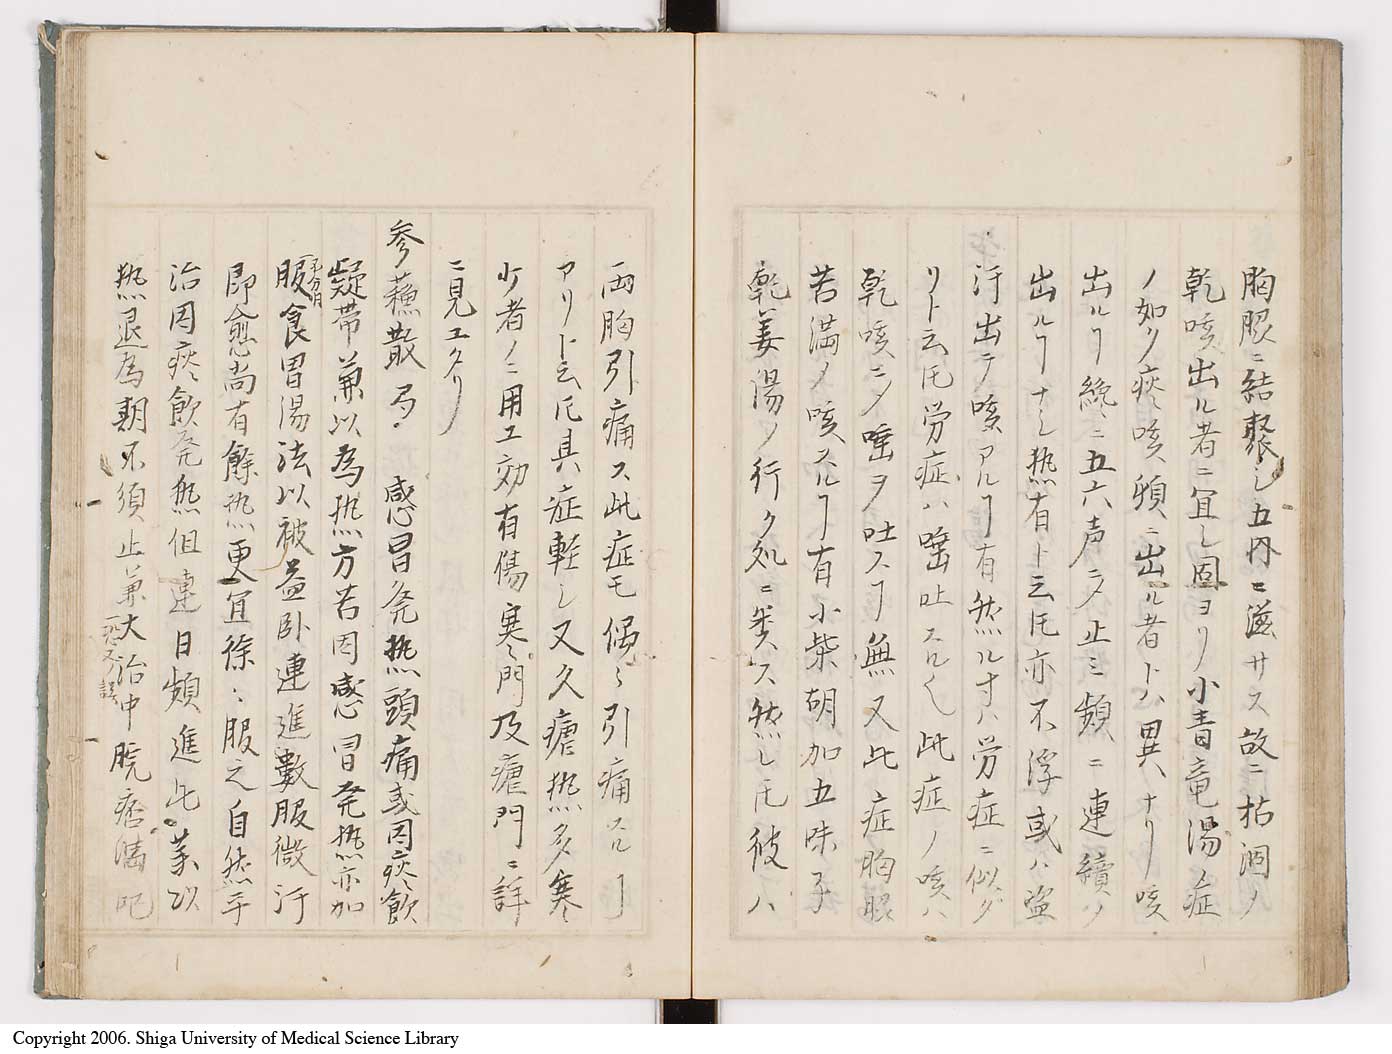 胸脹ニ結聚シ五内ニ滋サス故ニ枯涸ノ
乾咳出ル者ニ宜シ固ヨリ小青竜湯ノ症
ノ如ク痰咳頻ニ出ル者トハ異ナリ咳
出ルヿ纔ニ五六声ニメ止ミ頻ニ連續ノ
出ルヿナシ热有ト云氏亦不浮或ハ盗
汗出テ咳アルヿ有然ル寸ハ労症ニ似タ
リト云氏労症ハ唾吐スル也此症ノ咳ハ
乾咳ニメ唾ヲ吐スヿ無又此症胸脹
苦満ノ咳スルヿ有小柴胡加五味子
乾姜湯ノ行ク処ニ类ス然シ氏彼ハ
両胸引痛ス此症モ偏ニ引痛スルヿ
アリト云氏具症軽シ又久瘧热多寒
少者ノニ用エ効有傷寒門及瘧門ニ詳
ニ見エタリ
参蘓散 局 感冒発热頭痛或因痰飲
凝帯兼以為热方若因感冒発热亦加
服食胃湯法以被盖卧連進數服微汗
即愈尚有餘热更宜徐々服之自然平
治因痰飲発热但連日頻進此薬以
热退為期不須止兼大治中脘痞満呕